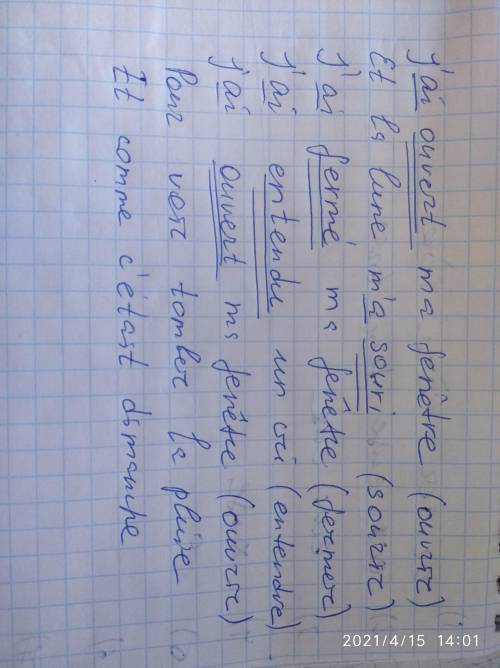 j'ai ouvert ma fenêtre (ouvrir)
Et la lune m'a souri (sourire)
j'ai fermé ma fenêtre (fermer)
j'ai entendu un cri (entendre)
j'ai ouvert ma fenêtre (ouvrir)
Pour voir tomber la pluie
Et comme c'était dimanche
2021/4/15 14:01